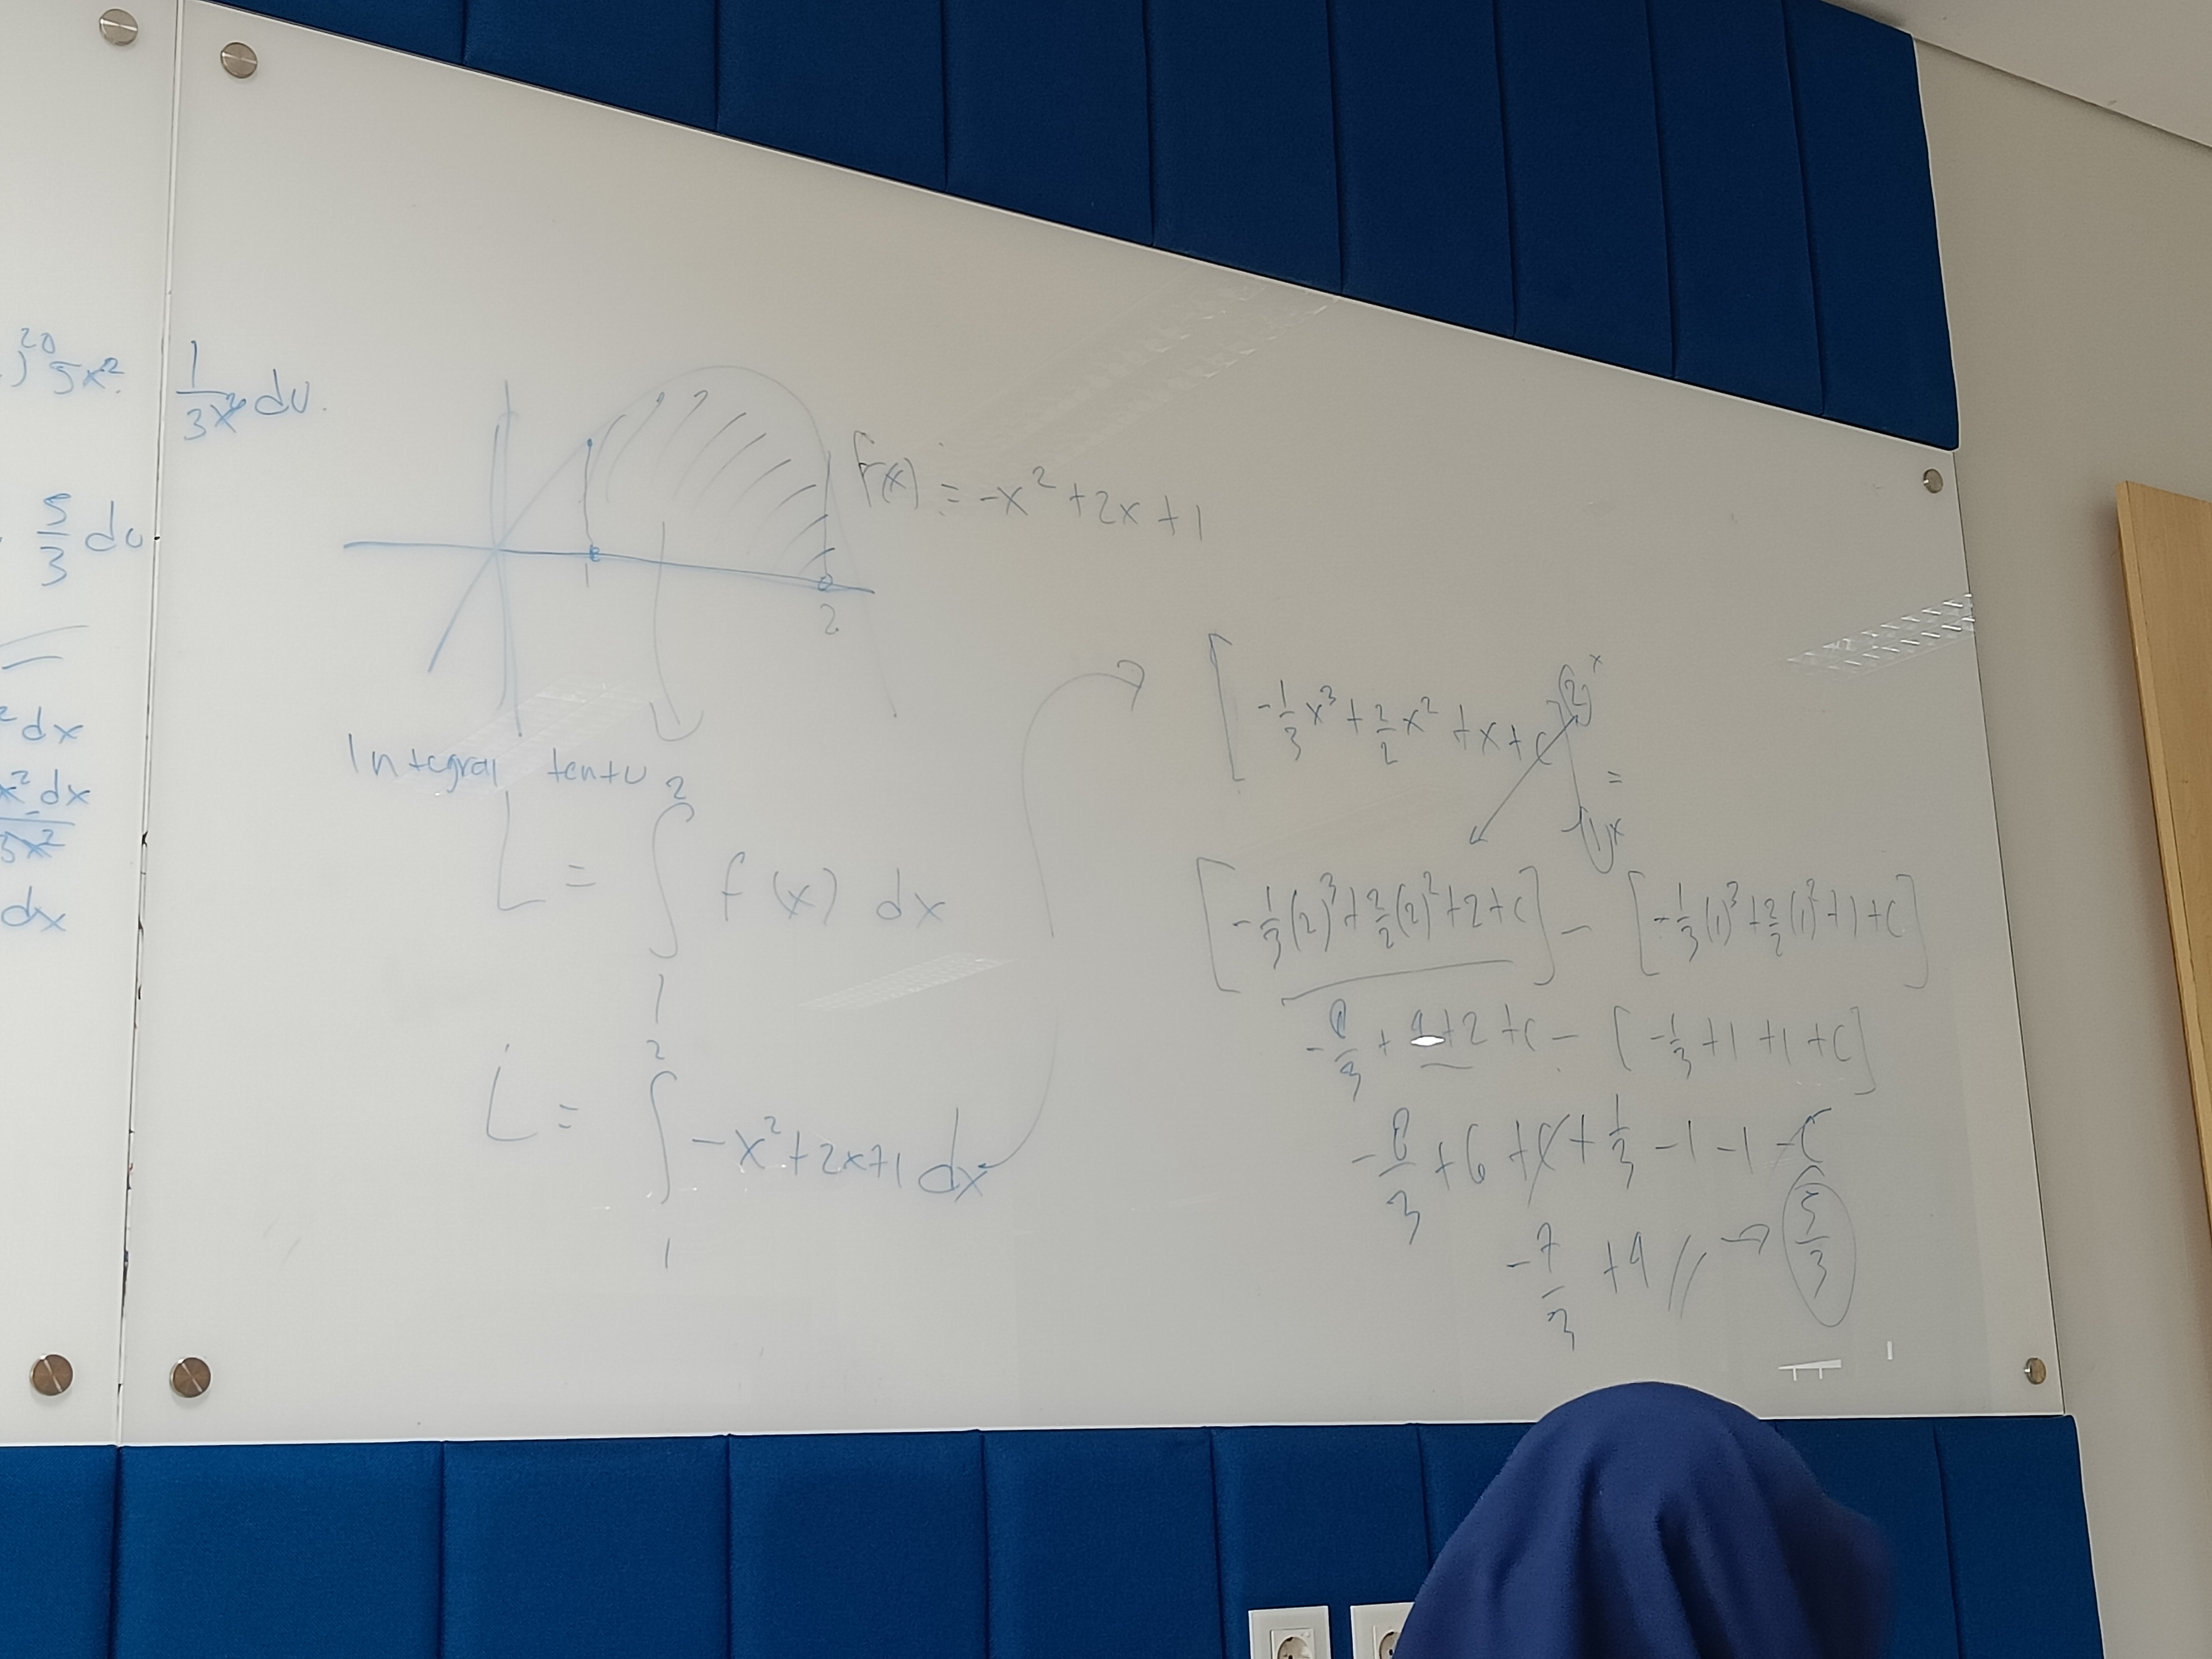 )²⁰ 5x²
1/3x² du.
5/3 du
² dx
x² dx
5x²
dx
f(x) = -x² + 2x + 1
1
2
Integral tentu
L = ∫₁² f(x) dx
L = ∫₁² -x² + 2x + 1 dx
[-1/3 x³ + 2/2 x² + x + c]₍₁₎ₓ⁽²⁾ˣ =
[-1/3 (2)³ + 2/2 (2)² + 2 + c] - [-1/3 (1)³ + 2/2 (1)² + 1 + c]
-8/3 + 4 + 2 + c - [-1/3 + 1 + 1 + c]
-8/3 + 6 + c + 1/3 - 1 - 1 - c
-7/3 + 4 // → 5/3